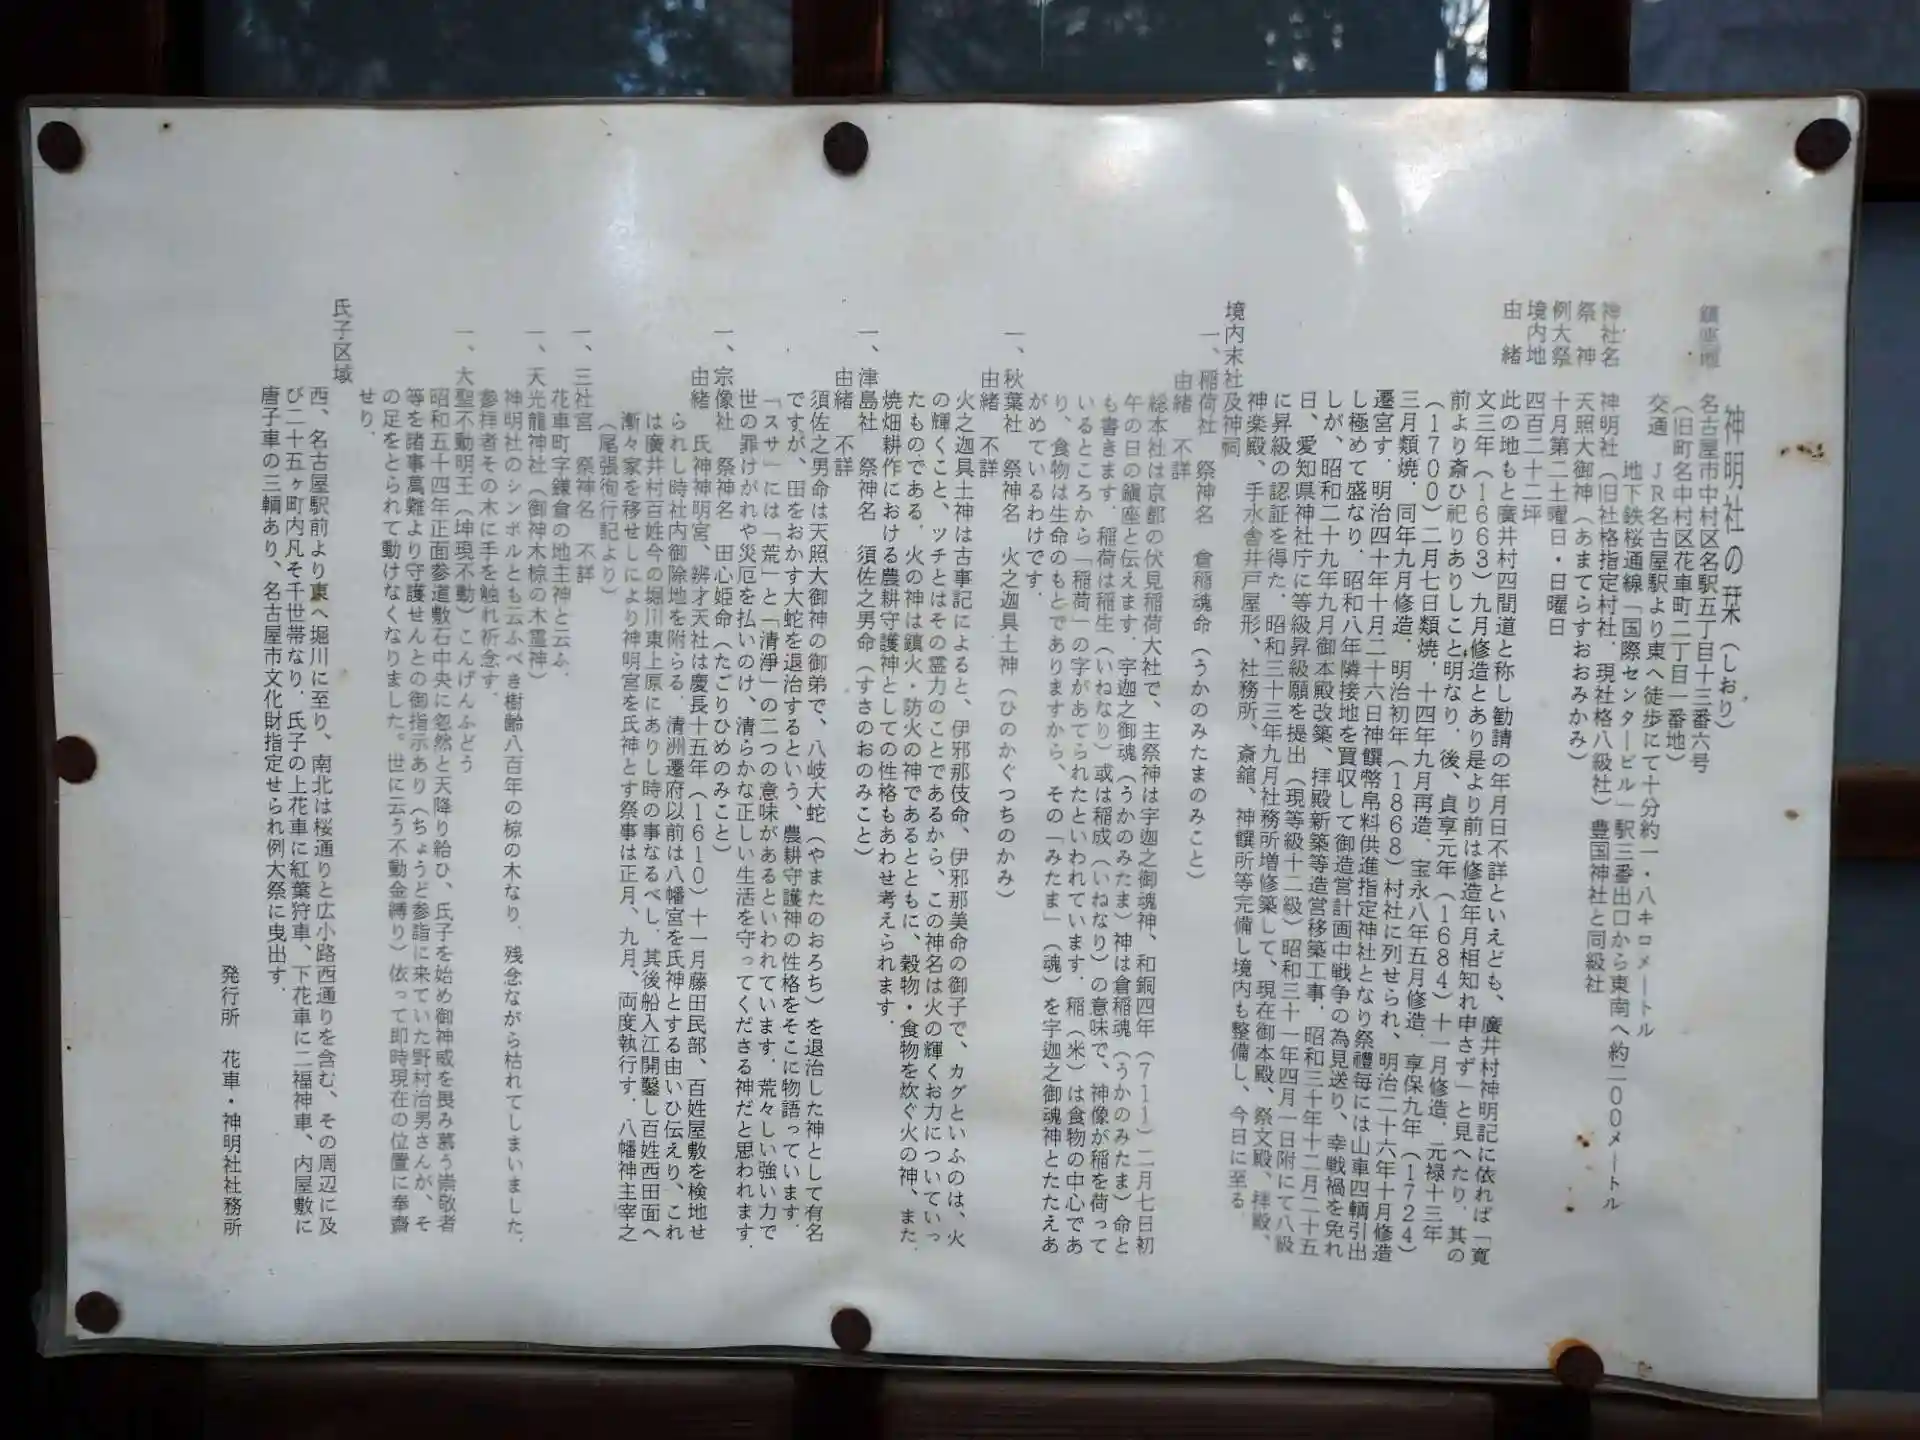 神明社の栞（しおり）
鎮座地　名古屋市中村区名駅五丁目十三番六号
（旧町名中村区花車町二丁目一番地）
交通　ＪＲ名古屋駅より東へ徒歩にて十分約一・八キロメートル
地下鉄桜通線「国際センタービル」駅三番出口から東南へ約二００メートル
神社名　神明社（旧社格指定村社．現社格八級社）豊国神社と同級社
祭　神　天照大御神（あまてらすおおみかみ）
例大祭　十月第二土曜日・日曜日
境内地　四百二十二坪
由　緒　此の地もと廣井村四間道と称し勧請の年月日不詳といえども、廣井村神明記に依れば「寛
文三年（１６６３）九月修造とあり是より前は修造年月相知れ申さず」と見へたり．其の
前より斎ひ祀りありしこと明なり．後、貞享元年（１６８４）十一月修造．元禄十三年
（１７００）二月七日類焼．十四年九月再造．宝永八年五月修造．享保九年（１７２４）
三月類焼．同年九月修造．明治初年（１８６８）村社に列せられ、明治二十六年十月修造
遷宮す．明治四十年十月二十六日神饌幣帛料供進指定神社となり祭禮毎には山車四輌引出
し極めて盛なり．昭和八年隣接地を買収して御造営計画中戦争の為見送り、幸戦禍を免れ
しが、昭和二十九年九月御本殿改築、拝殿新築等造営移築工事．昭和三十年十二月二十五
日、愛知県神社庁に等級昇級願を提出（現等級十二級）昭和三十一年四月一日附にて八級
に昇級の認証を得た．昭和三十三年九月社務所増修築して、現在御本殿、祭文殿、拝殿、
神楽殿、手水舎井戸屋形、社務所、斎舘、神饌所等完備し境内も整備し、今日に至る
境内末社及神祠
一、稲荷社　祭神名　倉稲魂命（うかのみたまのみこと）
由緒　不詳
総本社は京都の伏見稲荷大社で、主祭神は宇迦之御魂神、和銅四年（７１１）二月七日初
午の日の鎮座と伝えます．宇迦之御魂（うかのみたま）神は倉稲魂（うかのみたま）命と
も書きます．稲荷は稲生（いねなり）或は稲成（いねなり）の意味で、神像が稲を荷って
いるところから「稲荷」の字があてられたといわれています．稲（米）は食物の中心であ
り、食物は生命のもとでありますから、その「みたま」（魂）を宇迦之御魂神とたたえあ
がめているわけです．
一、秋葉社　祭神名　火之迦具土神（ひのかぐつちのかみ）
由緒　不詳
火之迦具土神は古事記によると、伊邪那伎命、伊邪那美命の御子で、カグといふのは、火
の輝くこと、ツチとはその霊力のことであるから、この神名は火の輝くお力についていっ
たものである．火の神は鎮火・防火の神であるとともに、穀物・食物を炊ぐ火の神、また．
焼畑耕作における農耕守護神としての性格もあわせ考えられます．
一、津島社　祭神名　須佐之男命（すさのおのみこと）
由緒　不詳
須佐之男命は天照大御神の御弟で、八岐大蛇（やまたのおろち）を退治した神として有名
ですが、田をおかす大蛇を退治するという、農耕守護神の性格をそこに物語っています．
「スサ」には「荒」と「清淨」の二つの意味があるといわれています．荒々しい強い力で
世の罪けがれや災厄を払いのけ、清らかな正しい生活を守ってくださる神だと思われます．
一、宗像社　祭神名　田心姫命（たごりひめのみこと）
由緒　氏神神明宮、辨才天社は慶長十五年（１６１０）十一月藤田民部、百姓屋敷を検地せ
られし時社内御除地を附らる．清洲遷府以前は八幡宮を氏神とする由いひ伝えり、これ
は廣井村百姓今の堀川東上原にありし時の事なるべし．其後船入江開鑿し百姓西田面へ
漸々家を移せしにより神明宮を氏神とす祭事は正月、九月、両度執行す．八幡神主宰之
（尾張徇行記より）
一、三社宮　祭神名　不詳
花車町字鎌倉の地主神と云ふ．
一、天光龍神社（御神木椋の木霊神）
神明社のシンボルとも云ふべき樹齢八百年の椋の木なり．残念ながら枯れてしまいました．
參拝者その木に手を触れ祈念す．
一、大聖不動明王（坤現不動）こんげんふどう
昭和五十四年正面参道敷石中央に忽然と天降り給ひ、氏子を始め御神威を畏み慕う崇敬者
等を諸事萬難より守護せんとの御指示あり（ちょうど参詣に来ていた野村治男さんが、そ
の足をとられて動けなくなりました。世に云う不動金縛り）依って即時現在の位置に奉齋
せり．
氏子区域
西、名古屋駅前より東へ堀川に至り、南北は桜通りと広小路西通りを含む、その周辺に及
び二十五ヶ町内凡そ千世帯なり．氏子の上花車に紅葉狩車、下花車に二福神車、内屋敷に
唐子車の三輌あり、名古屋市文化財指定せられ例大祭に曳出す．
発行所　花車・神明社社務所